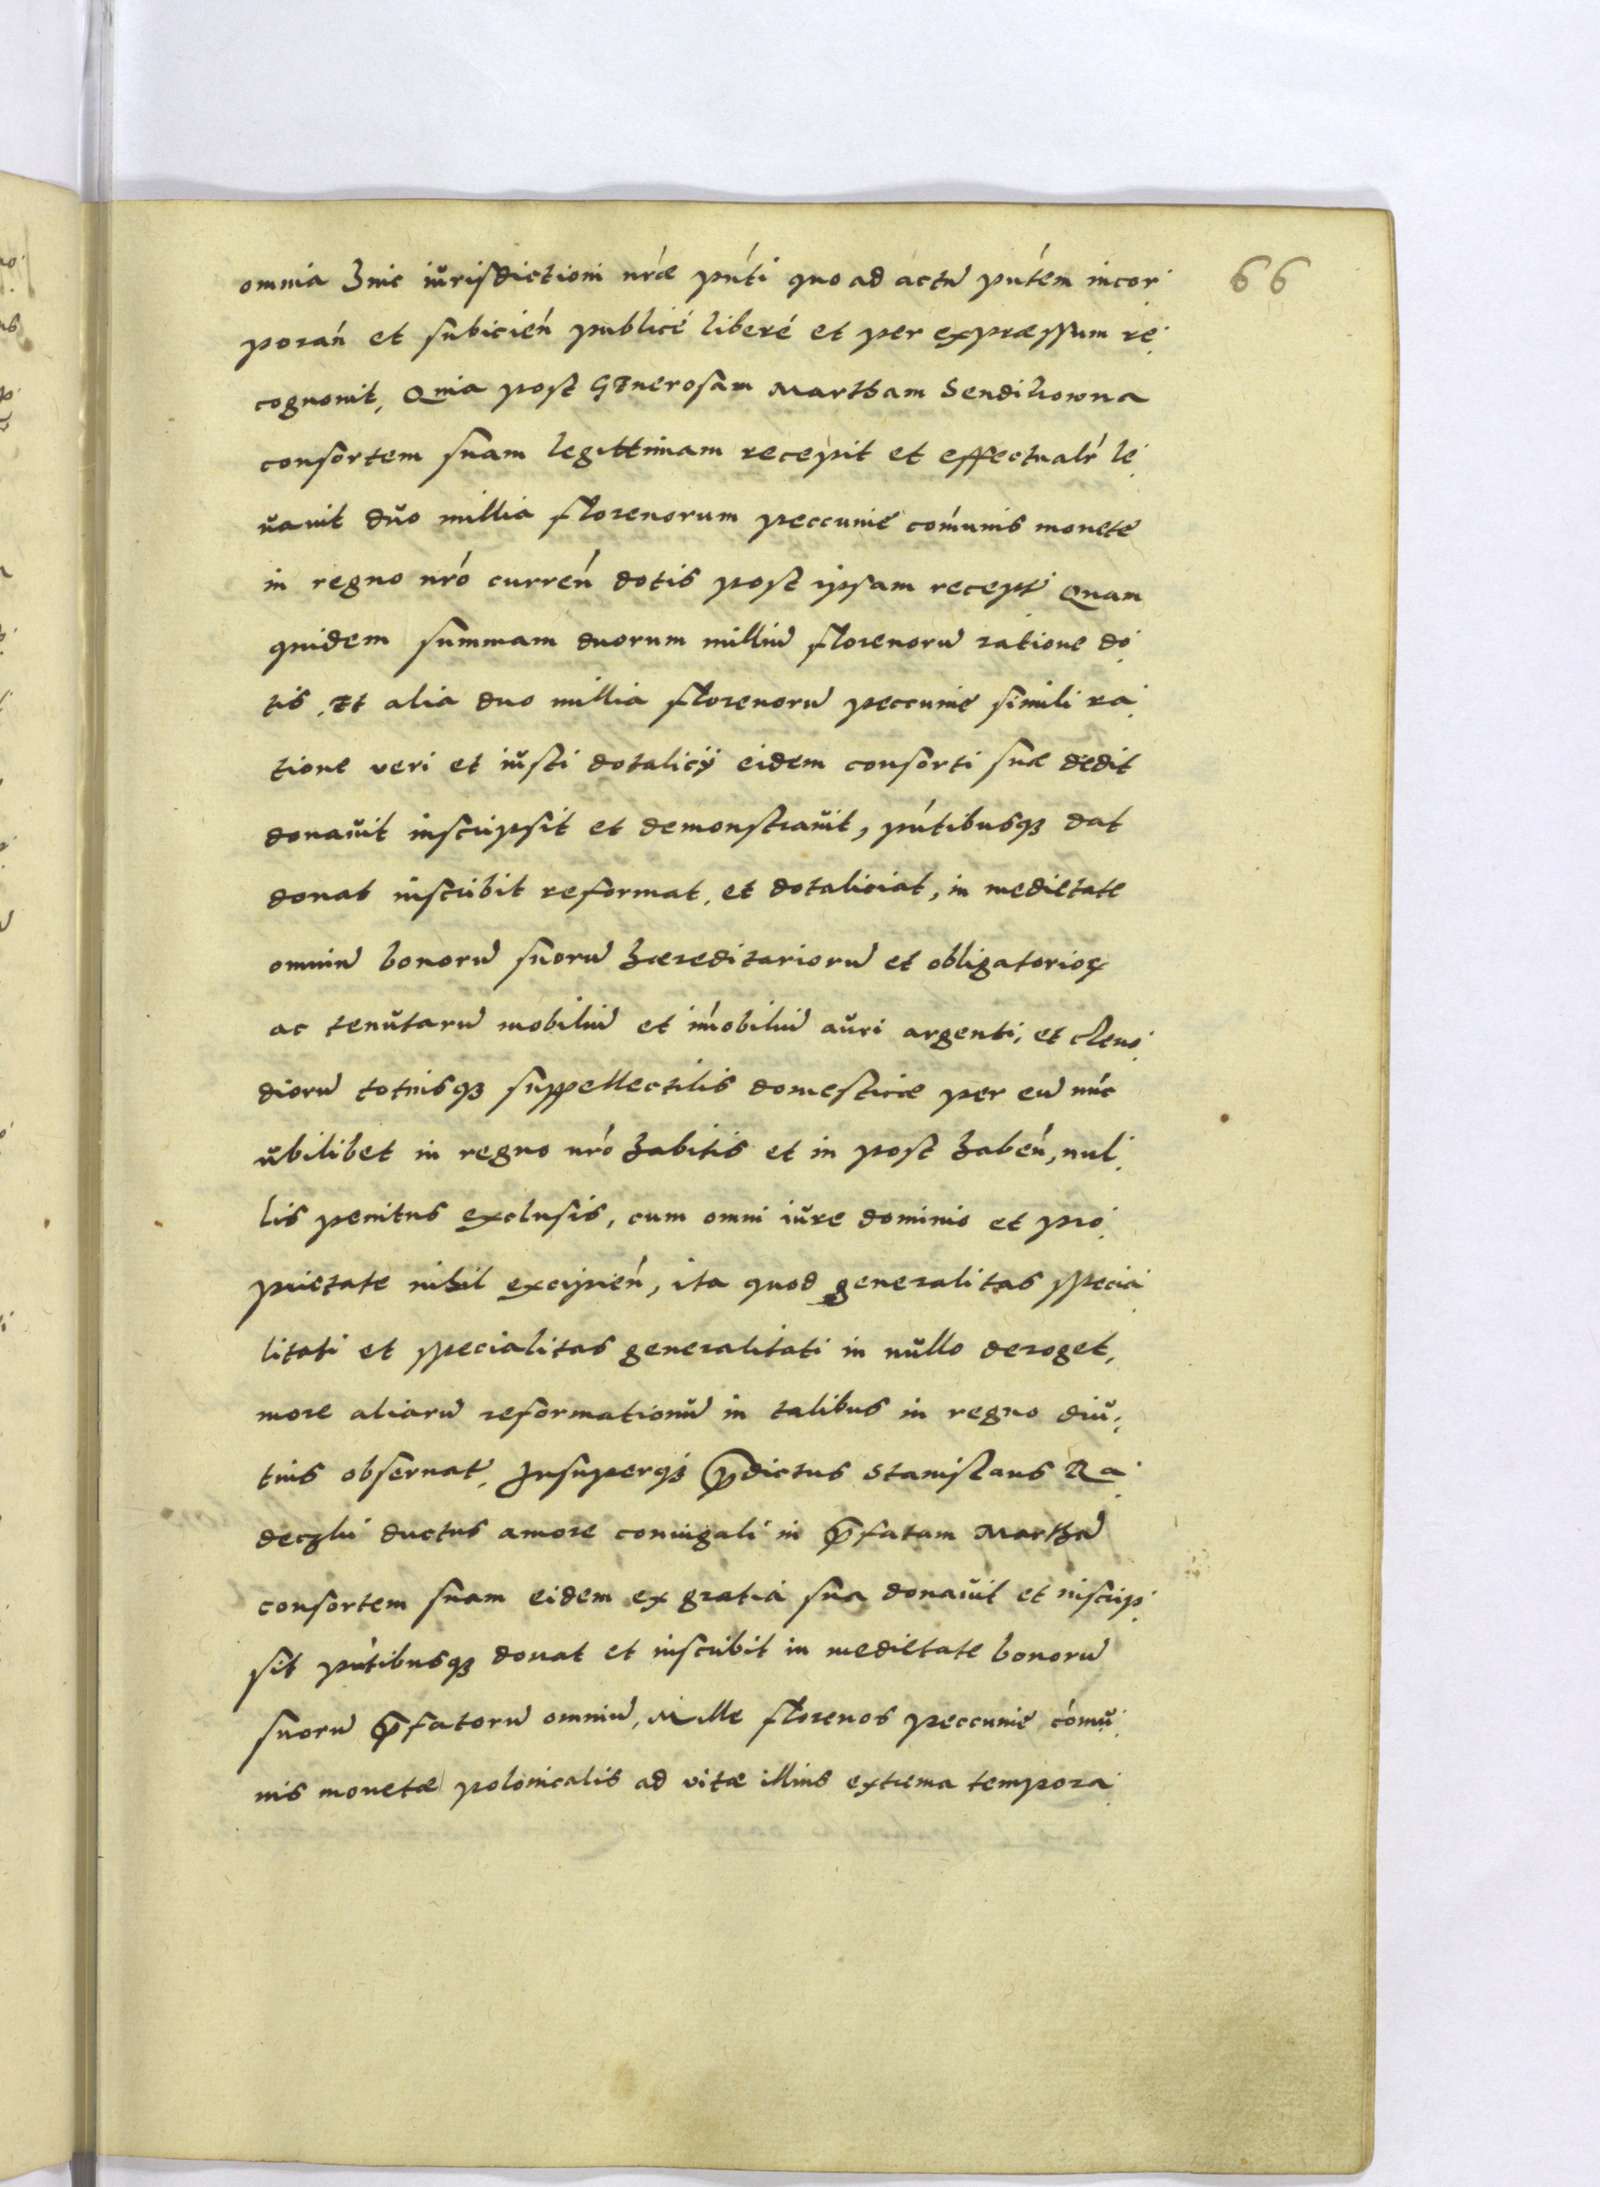 66
omnia huic iurisdictioni nŕae pńti quo ad actū pńtem incor
porań et subicień publicé liberé et per expraessum re
cognouit, Quia post Generosam Martham Sendikowna
consortem suam legittimam recepit et effectualŕ le
uauit duo millia florenorum peccuniē com̄unis monetē
in regno nŕo curreń dotis post ipsam receptē Quam
quidem summam duorum milliū florenorū ratione do
tis, Et alia duo millia florenorū peccuniē simili ra
tione veri et iusti dotalicij eidem consorti suae dedit
donauit inscripsit et demonstrauit, pńtibusq3 dat
donat inscribit reformat, et dotaliciat, in medietate
omniū bonorū suorū haereditariorū et obligatorioꝝ
ac tenutarū mobiliū et im̄obiliū auri argenti, et cleno
diorū totiusq3 suppellectilis domesticae per eū nūc
ubilibet in regno nŕo habitis et in post habeń, nul
lis penitus exclusis, cum omni iure dominio et pro
prietate nihil excipień, ita quod generalitas specia
litati et specialitas generalitati in nullo deroget,
more aliarū reformationū in talibus in regno diu
tius obseruatē, Insuperq3 p̄dictus Stanislaus Ra
deczki ductus amore coniugali in p̄fatam Marthā
consortem suam eidem ex gratia sua donauit et inscrip
sit pńtibusq3 donat et inscribit in medietate bonorū
suorū p̄fatorū omniū, Mille florenos peccuniē com̄u
nis monetae polonicalis ad vitae illius extrema tempora